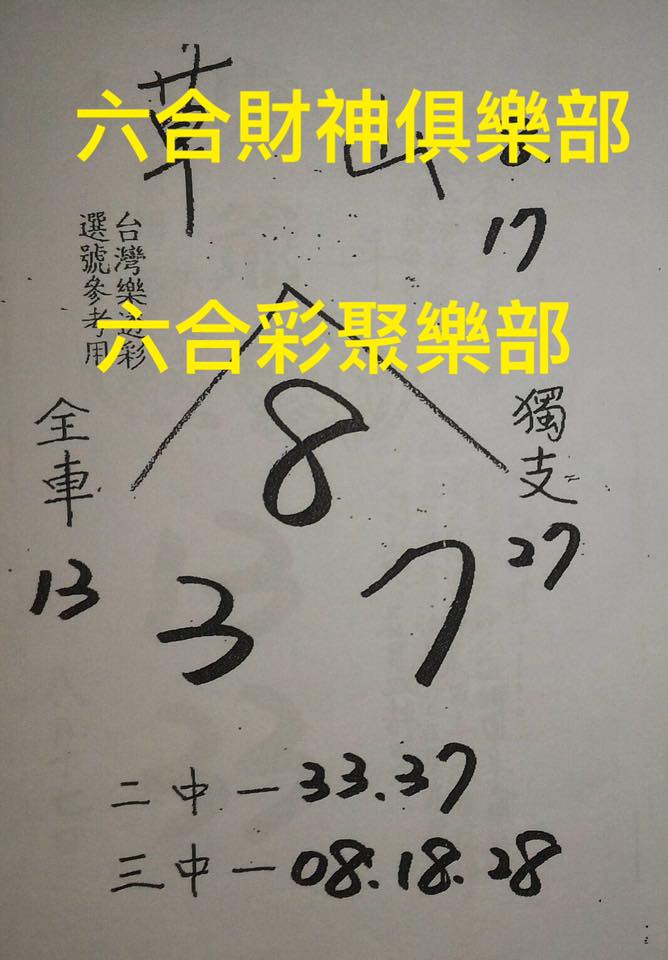 草山
六合財神俱樂部
17
台灣樂透彩
選號參考用
六合彩聚樂部
8
全車
獨支
13
27
3 7
二中一33.37
三中一08.18.28